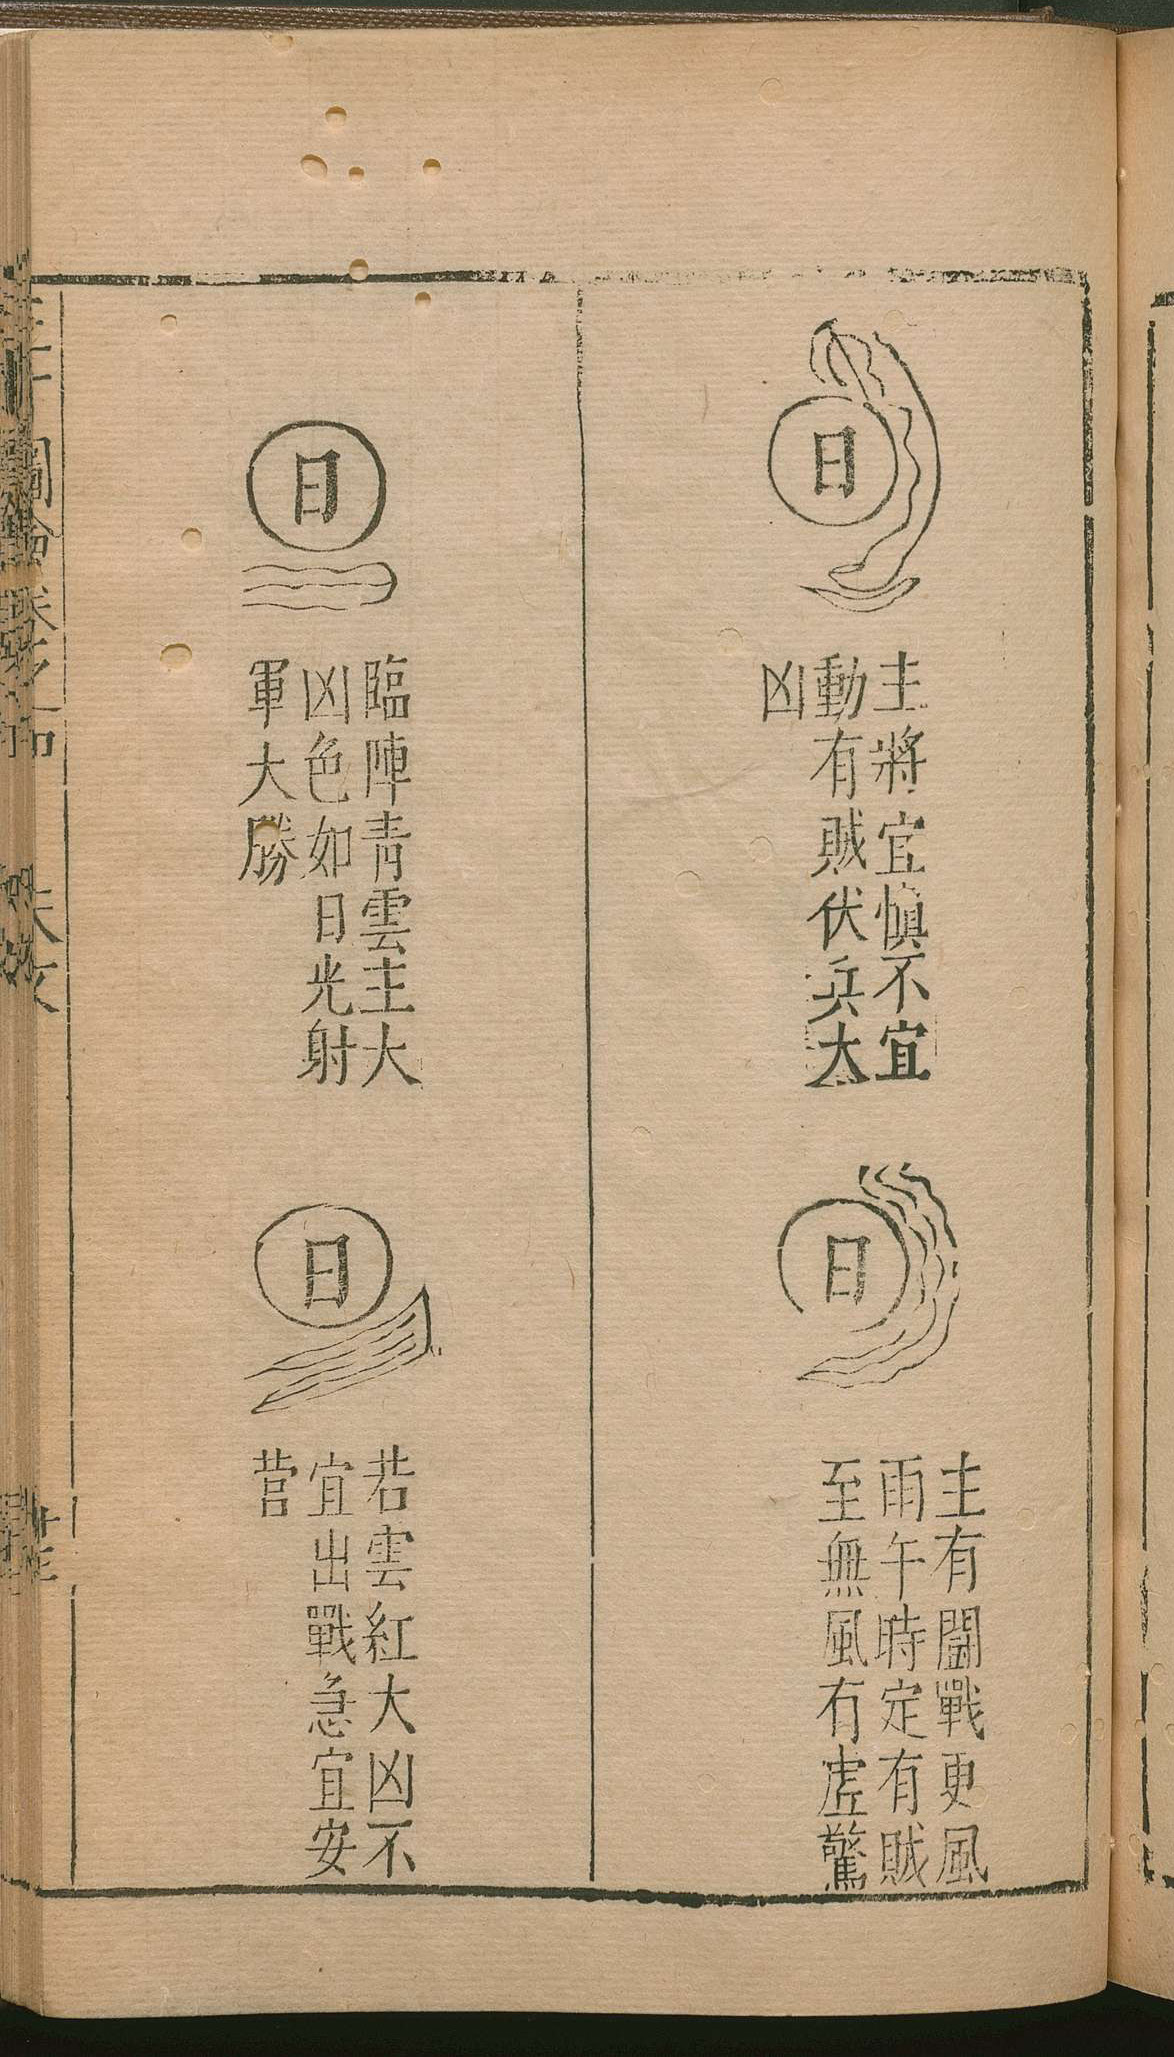 日
主將宜慎不宜
動有賊伏兵大
凶
日
主有鬪戰更風
雨午時定有賊
至無風有虛驚
日
臨陣青雲主大
凶色如日光射
軍大勝
日
若雲紅大凶不
宜出戰急宜安
营